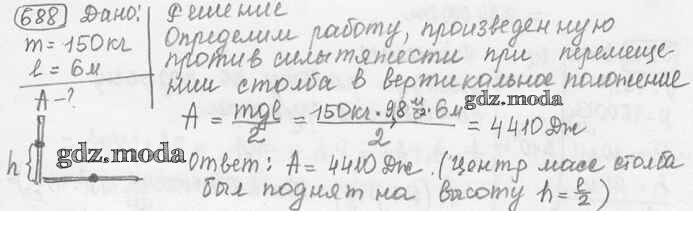 688 Дано:
m = 150 кг
l = 6 м
A - ?
Решение
Определим работу, произведенную
против силы тяжести при перемеще-
нии столба в вертикальное положение
A = mgl/2 = 150кг · 9,8 м/с² · 6м / 2 = 4410 Дж
gdz.moda
h
gdz.moda
Ответ: A = 4410 Дж. (Центр масс столба
был поднят на высоту h = l/2)